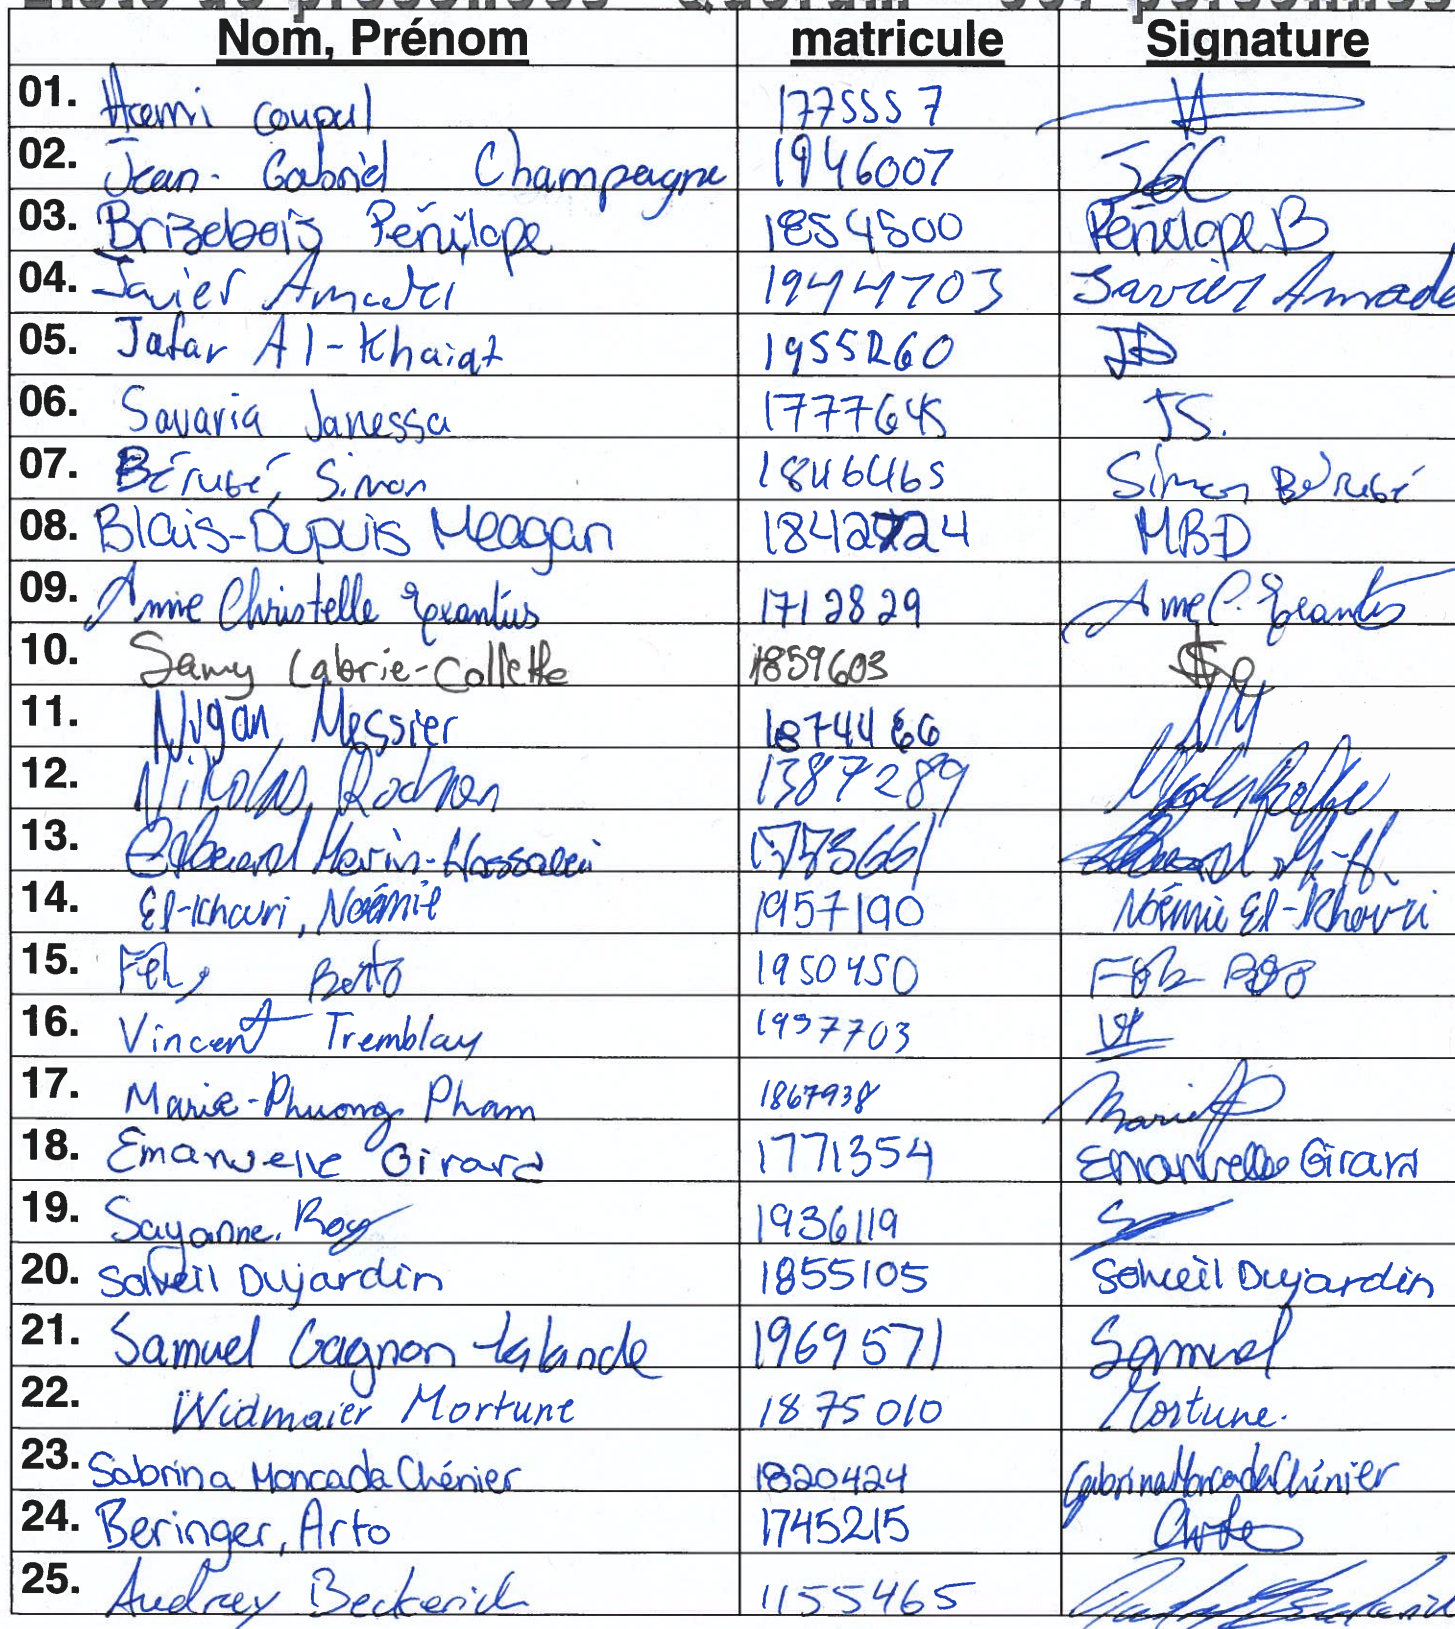 Liste de présences Quorum 307 personnes
Nom, Prénom matricule Signature
01. Henri Coupal 1775557
02. Jean-Gabriel Champagne 1946007 JGC
03. Brizebois Pénélope 1854500 Pénélope B
04. Javier Amador 1944703 Javier Amado
05. Jafar Al-Khaiat 1955260
06. Savaria Janessa 1777645 JS.
07. Bérubé, Simon 1846465 Simon Bérubé
08. Blais-Dupuis Meagan 1842724 MBD
09. Anne Christelle Exantus 1712829 Anne C. Exantus
10. Samy Labrie-Collette 1859603
11. Messier 1874466 NM
12. Nikolas 1387289
13. Morin-Hosseini 1773661
14. El-Khouri, Noémie 1957190 Noémie El-Khouri
15. 1950450
16. Vincent Tremblay 1937703 VT
17. Marie-Phuong Pham 1867938 Marie
18. Emanuelle Girard 1771354 Emanuelle Girard
19. Sayanne Roy 1936119
20. Solveil Dujardin 1855105 Solveil Dujardin
21. Samuel Gagnon Lalande 1969571 Samuel
22. Widmaier Mortune 1875010 Mortune.
23. Sabrina Moncada Chénier 1820424 Sabrina Moncada Chénier
24. Beringer, Arto 1745215 Arto
25. Audrey Beckerich 1155465